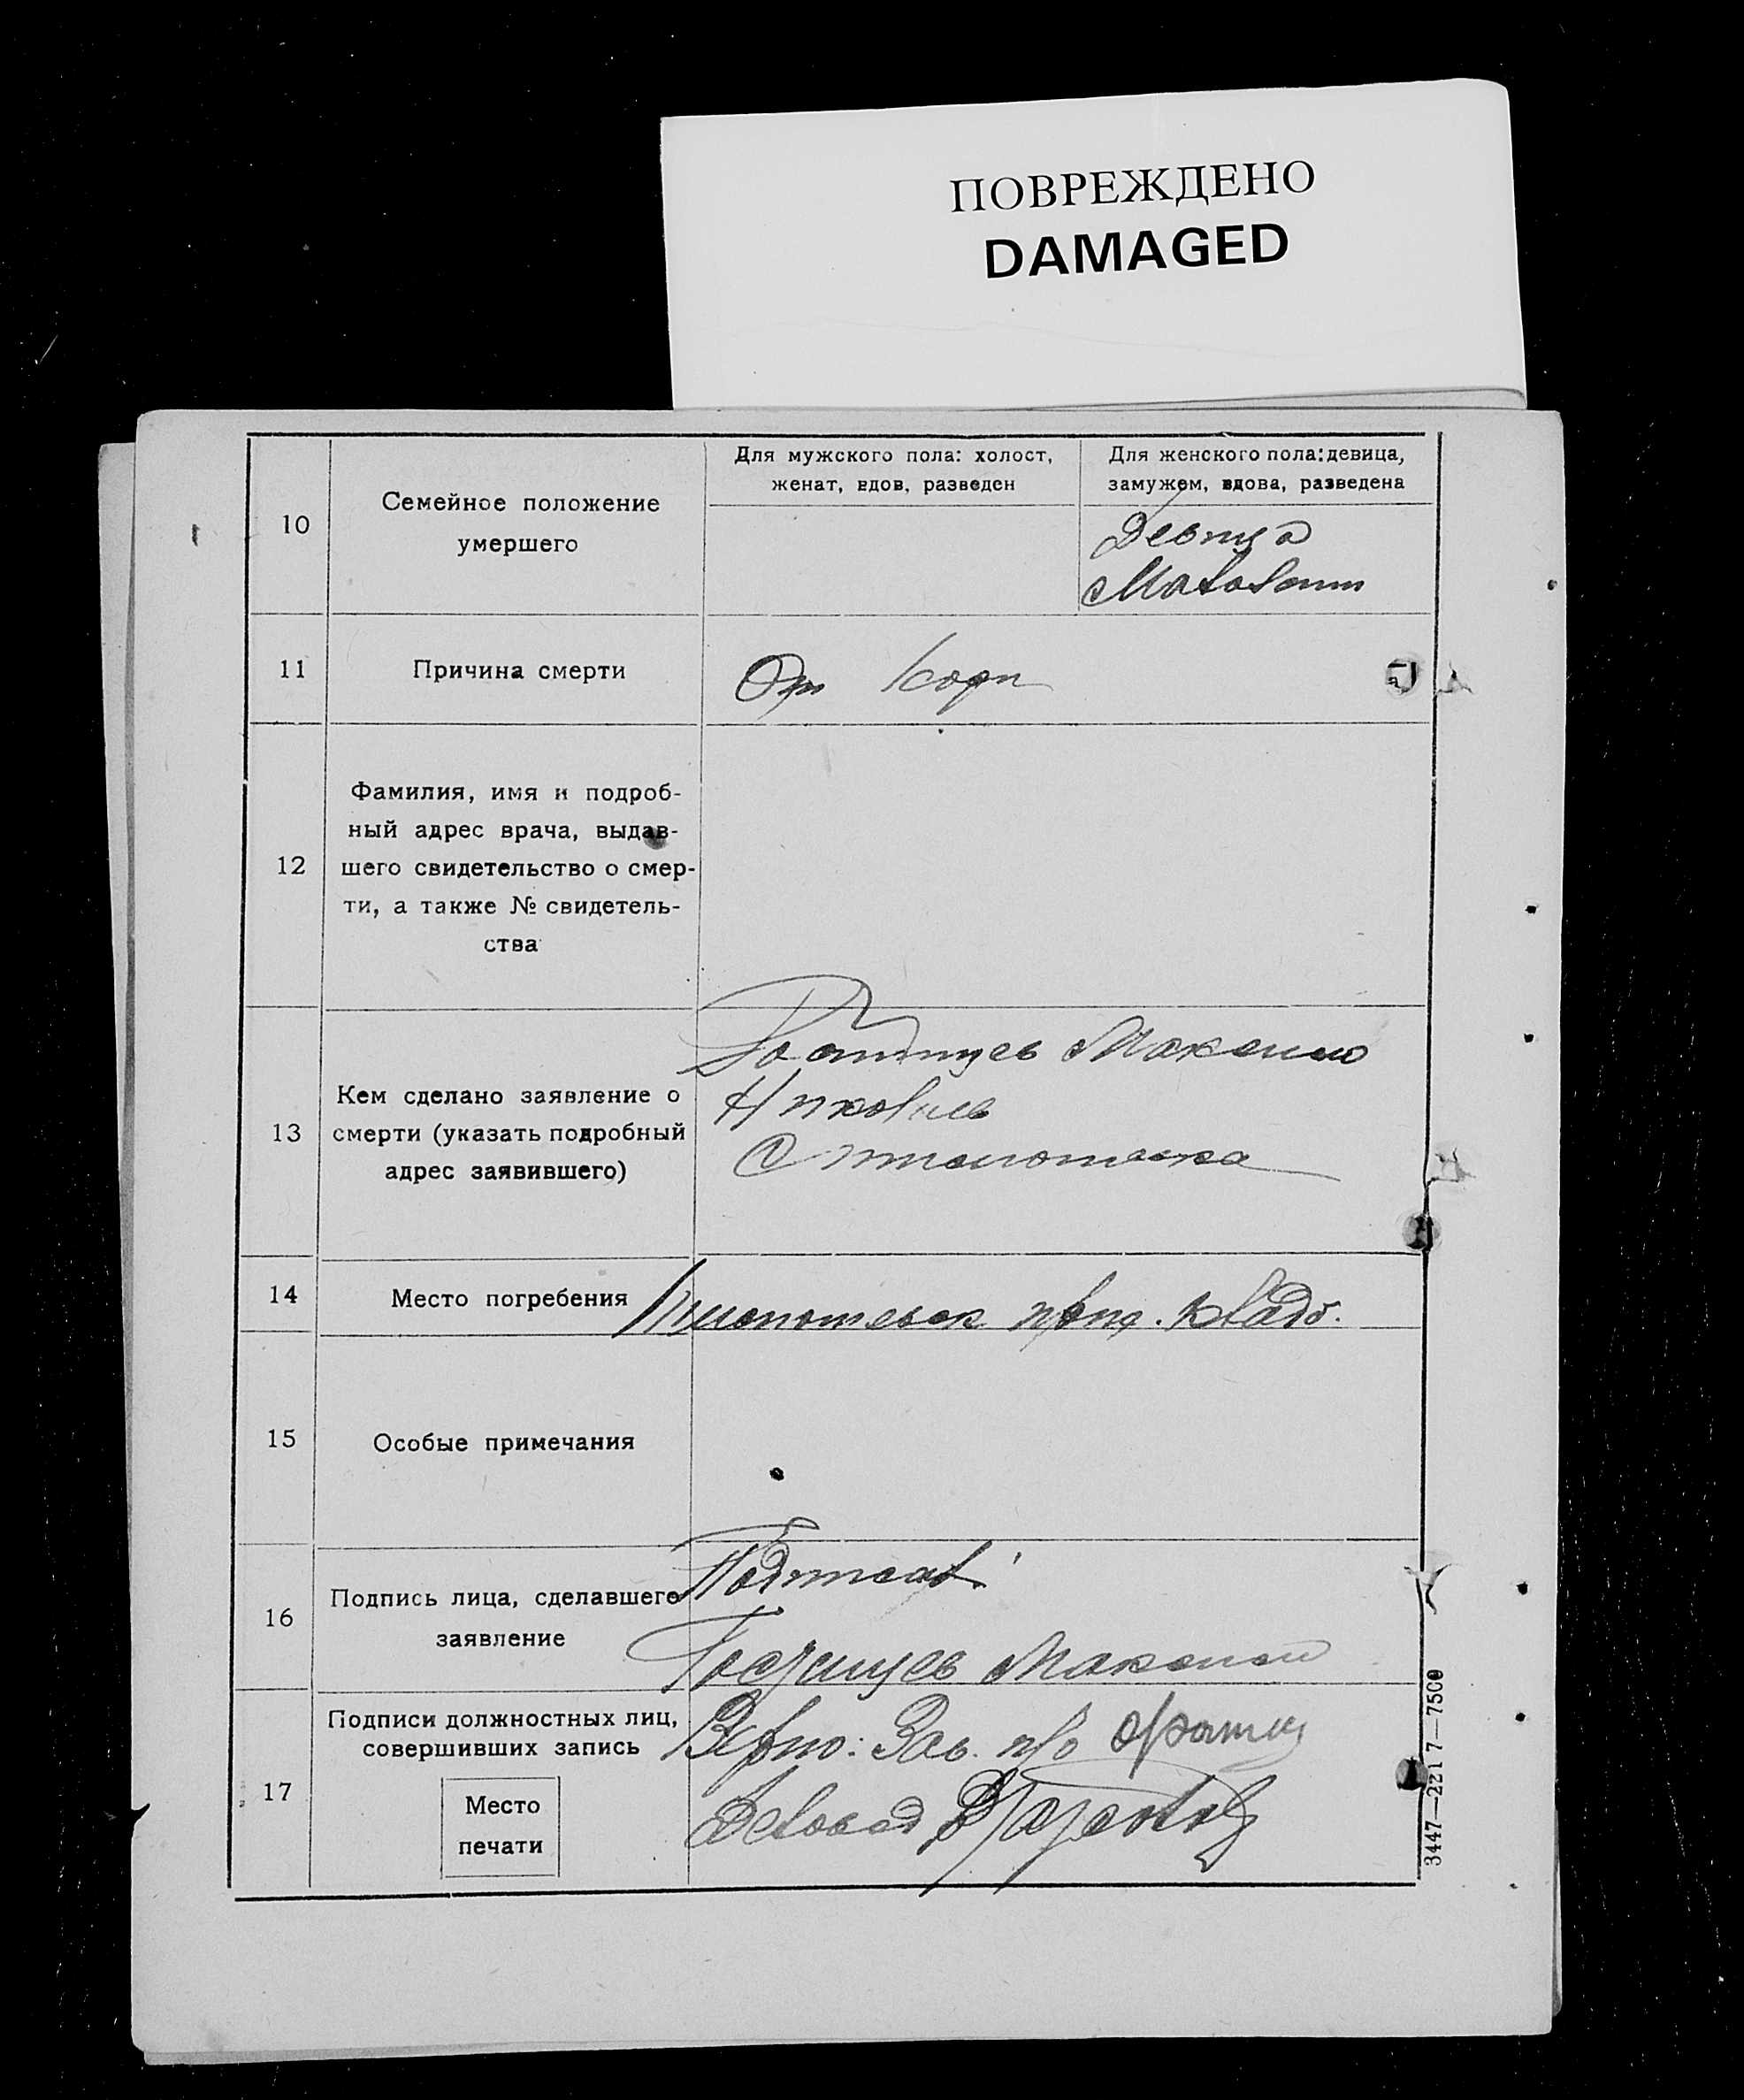 ПОВРЕЖДЕНО
DAMAGED
10
Семейное положение
умершего
Для мужского пола: холост,
женат, вдов, разведен
Для женского пола: девица,
замужем, вдова, разведена
Девица
11
Причина смерти
От кори
12
Фамилия, имя и подроб-
ный адрес врача, выдав-
шего свидетельство о смер-
ти, а также № свидетель-
ства
13
Кем сделано заявление о
смерти (указать подробный
адрес заявившего)
Максим
14
Место погребения
кладб.
15
Особые примечания
16
Подпись лица, сделавшего
заявление
Подписал
Максим
17
Подписи должностных лиц,
совершивших запись
Место
печати
Верно: Зав.
3447—2217—7500